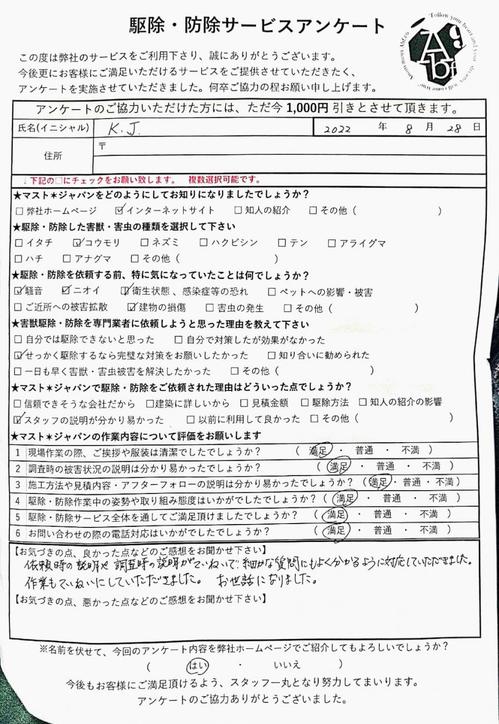 駆除・防除サービスアンケート
この度は弊社のサービスをご利用下さり、誠にありがとうございます。
今後更にお客様にご満足いただけるサービスをご提供させていただきたく、
アンケートを実施させていただきました。何卒ご協力の程お願い申し上げます。
アンケートのご協力いただけた方には、ただ今1,000円引きとさせて頂きます。
氏名(イニシャル) K.J. 2022 年 8 月 28 日
住所 〒
↓下記の□にチェックをお願い致します。 複数選択可能です。
★マスト＊ジャパンをどのようにしてお知りになりましたでしょうか?
□弊社ホームページ ☑インターネットサイト □知人の紹介 □その他( )
★駆除・防除した害獣・害虫の種類を選択して下さい
□イタチ ☑コウモリ □ネズミ □ハクビシン □テン □アライグマ
□ハチ □アナグマ □その他( )
★駆除・防除を依頼する前、特に気になっていたことは何でしょうか?
☑騒音 ☑ニオイ ☑衛生状態、感染症等の恐れ □ペットへの影響・被害
□ご近所への被害拡散 ☑建物の損傷 □害虫の発生 □その他( )
★害獣駆除・防除を専門業者に依頼しようと思った理由を教えて下さい
□自分では駆除できないと思った □自分で対策したが効果がなかった
☑せっかく駆除するなら完璧な対策をお願いしたかった □知り合いに勧められた
□一日も早く害獣・害虫被害を解決したかった □その他( )
★マスト＊ジャパンで駆除・防除をご依頼された理由はどういった点でしょうか?
□信頼できそうな会社だから □建築に詳しいから □見積金額 □駆除方法 □知人の紹介の影響
☑スタッフの説明が分かり易かった □以前に利用して良かった □その他( )
★マスト＊ジャパンの作業内容について評価をお願いします
1 現場作業の際、ご挨拶や服装は清潔でしたでしょうか? ( 満足 ・ 普通 ・ 不満 )
2 調査時の被害状況の説明は分かり易かったでしょうか? ( 満足 ・ 普通 ・ 不満 )
3 施工方法や見積内容・アフターフォローの説明は分かり易かったでしょうか? ( 満足 ・ 普通 ・ 不満 )
4 駆除・防除作業中の姿勢や取り組み態度はいかがでしたでしょうか? ( 満足 ・ 普通 ・ 不満 )
5 駆除・防除サービス全体を通してご満足頂けましたでしょうか? ( 満足 ・ 普通 ・ 不満 )
6 お問い合わせの際の電話対応はいかがでしたでしょうか? ( 満足 ・ 普通 ・ 不満 )
【お気づきの点、良かった点などのご感想をお聞かせ下さい】
依頼時の説明や調査時の説明がていねいで細かな質問にもよく分かるように対応していただきました。
作業もていねいにしていただきました。 お世話になりました。
【お気づきの点、悪かった点などのご感想をお聞かせ下さい】
※名前を伏せて、今回のアンケート内容を弊社ホームページでご紹介してもよろしいでしょうか?
( はい ・ いいえ )
今後もお客様にご満足頂けるよう、スタッフ一丸となり努力してまいります。
アンケートのご協力ありがとうございました。